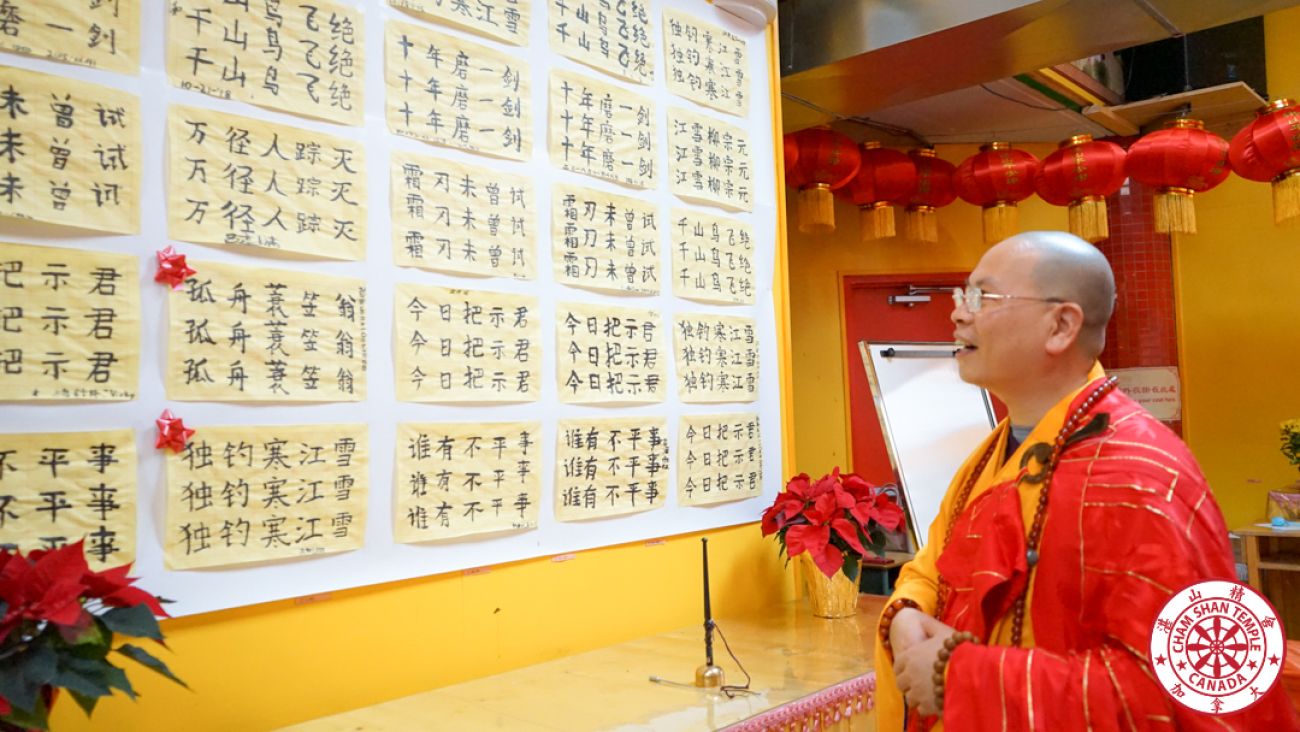 一剑
未曾试
未曾试
未曾试
把示君
把示君
把示君
不平事
不平事
不平事
山鸟飞绝
千山鸟飞绝
千山鸟飞绝
10-21-18
万径人踪灭
万径人踪灭
万径人踪灭
孤舟蓑笠翁
孤舟蓑笠翁
孤舟蓑笠翁
独钓寒江雪
独钓寒江雪
独钓寒江雪
寒江雪
十年磨一剑
十年磨一剑
十年磨一剑
霜刃未曾试
霜刃未曾试
霜刃未曾试
今日把示君
今日把示君
今日把示君
谁有不平事
谁有不平事
谁有不平事
千山鸟飞绝
千山鸟飞绝
十年磨一剑
十年磨一剑
十年磨一剑
霜刃未曾试
霜刃未曾试
霜刃未曾试
今日把示君
今日把示君
今日把示君
谁有不平事
谁有不平事
谁有不平事
独钓寒江雪
独钓寒江雪
独钓寒江雪
江雪柳宗元
江雪柳宗元
江雪柳宗元
千山鸟飞绝
千山鸟飞绝
千山鸟飞绝
独钓寒江雪
独钓寒江雪
独钓寒江雪
今日把示君
今日把示君
今日把示君
your coat here
湛山精舍
CHAM SHAN TEMPLE
CANADA
加拿大